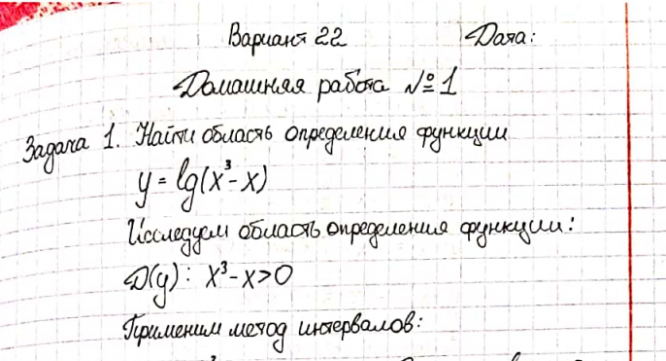 Вариант 22 Дата:
Домашняя работа №1
Задача 1. Найти область определения функции
y = lg(x³-x)
Исследуем область определения функции:
D(y): x³-x>0
Применим метод интервалов: